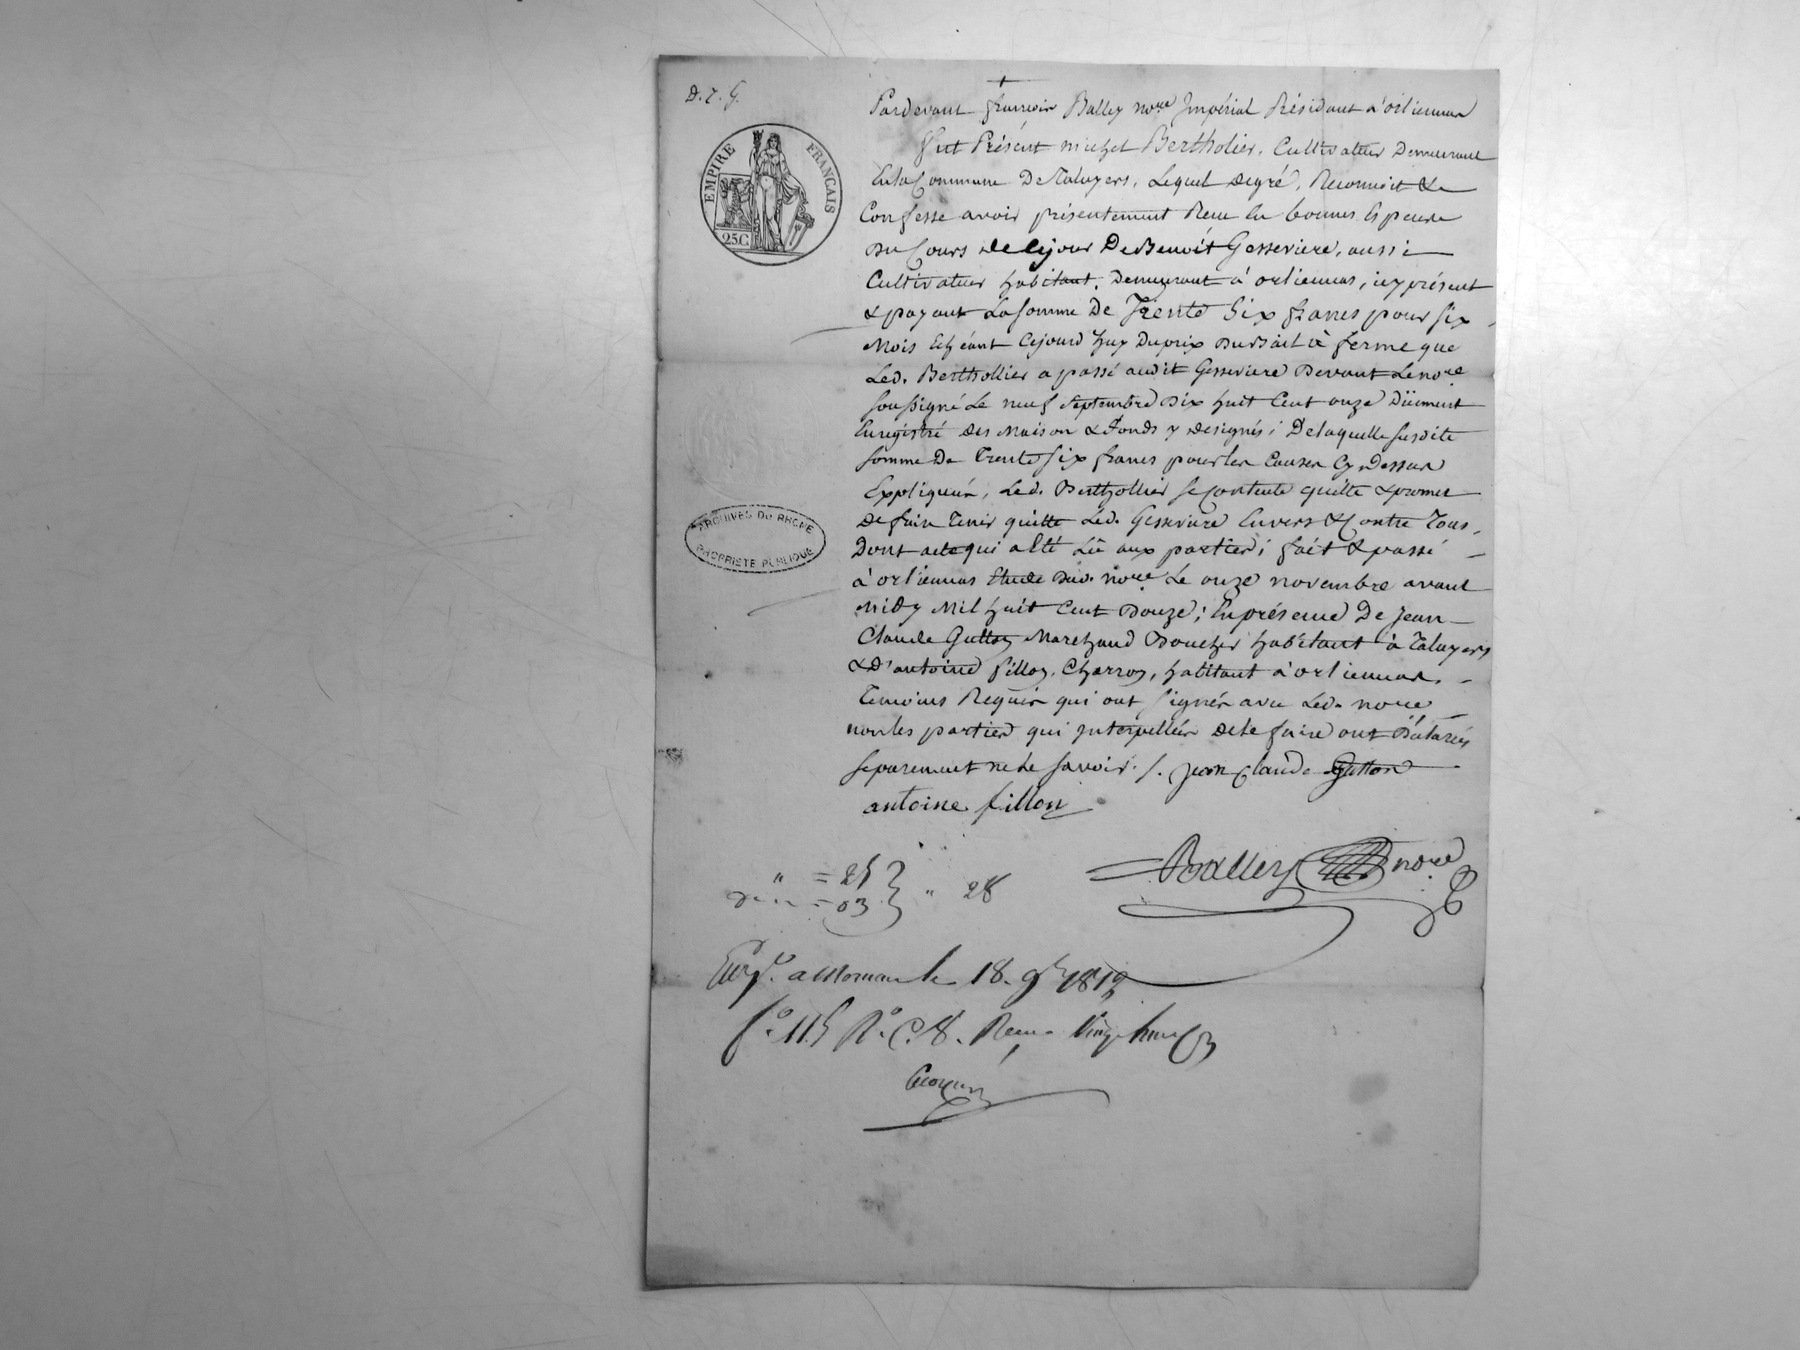 D. 7. G.
Pardevant françois Balley no.re Impérial Résidant à orliennas
fut Présent michel Bertholier, Cultivateur Demeurant
En la Commune De Taluyers, Lequel de gré, Reconnoit &
Confesse avoir présentement Reçu En bonnes Espèces
Du Cours de Cejour De Benoit Gesseviere, aussi
Cultivateur habitant, Demeurant à orliennas, icy présent
& payant La somme De Trente Six francs pour six
Mois Echéant Cejourd'huy Du prix Du Bail à ferme que
Led. Berthollier a passé audit Gesseviere Devant Le no.re
soussigné Le neuf septembre Dix huit Cent onze Düement
Enregistré des Maison & fonds y designés ; De laquelle susdite
somme De Trente six francs pour les Causes Cy Dessus
Expliquées, Led. Berthollier se Contente quitte & promet
de faire Tenir quitte Led. Gesseviere Envers & Contre Tous,
Dont acte qui a Eté Lû aux parties ; fait & passé
à orliennas Etude Dud. no.re Le onze novembre avant
Midy Mil huit Cent Douze ; En présence De Jean
Claude Gutton Marchand Boucher habitant à Taluyers
& D'antoine fillon, Charron, habitant à orliennas,
Temoins Requis qui ont signés avec Led. no.re
non les parties qui Interpellées de le faire ont Déclarées
séparement ne le savoir. /. jean Claude Gutton
antoine fillon
Balley no.re
EMPIRE FRANCAIS
25C
ARCHIVES DU RHONE
PROPRIETE PUBLIQUE
" = 25
= 03
" 28
Enr.é a Mornant le 18. 9bre 1812
f.o 115 R.o C. 8. Reçu Vingt huit